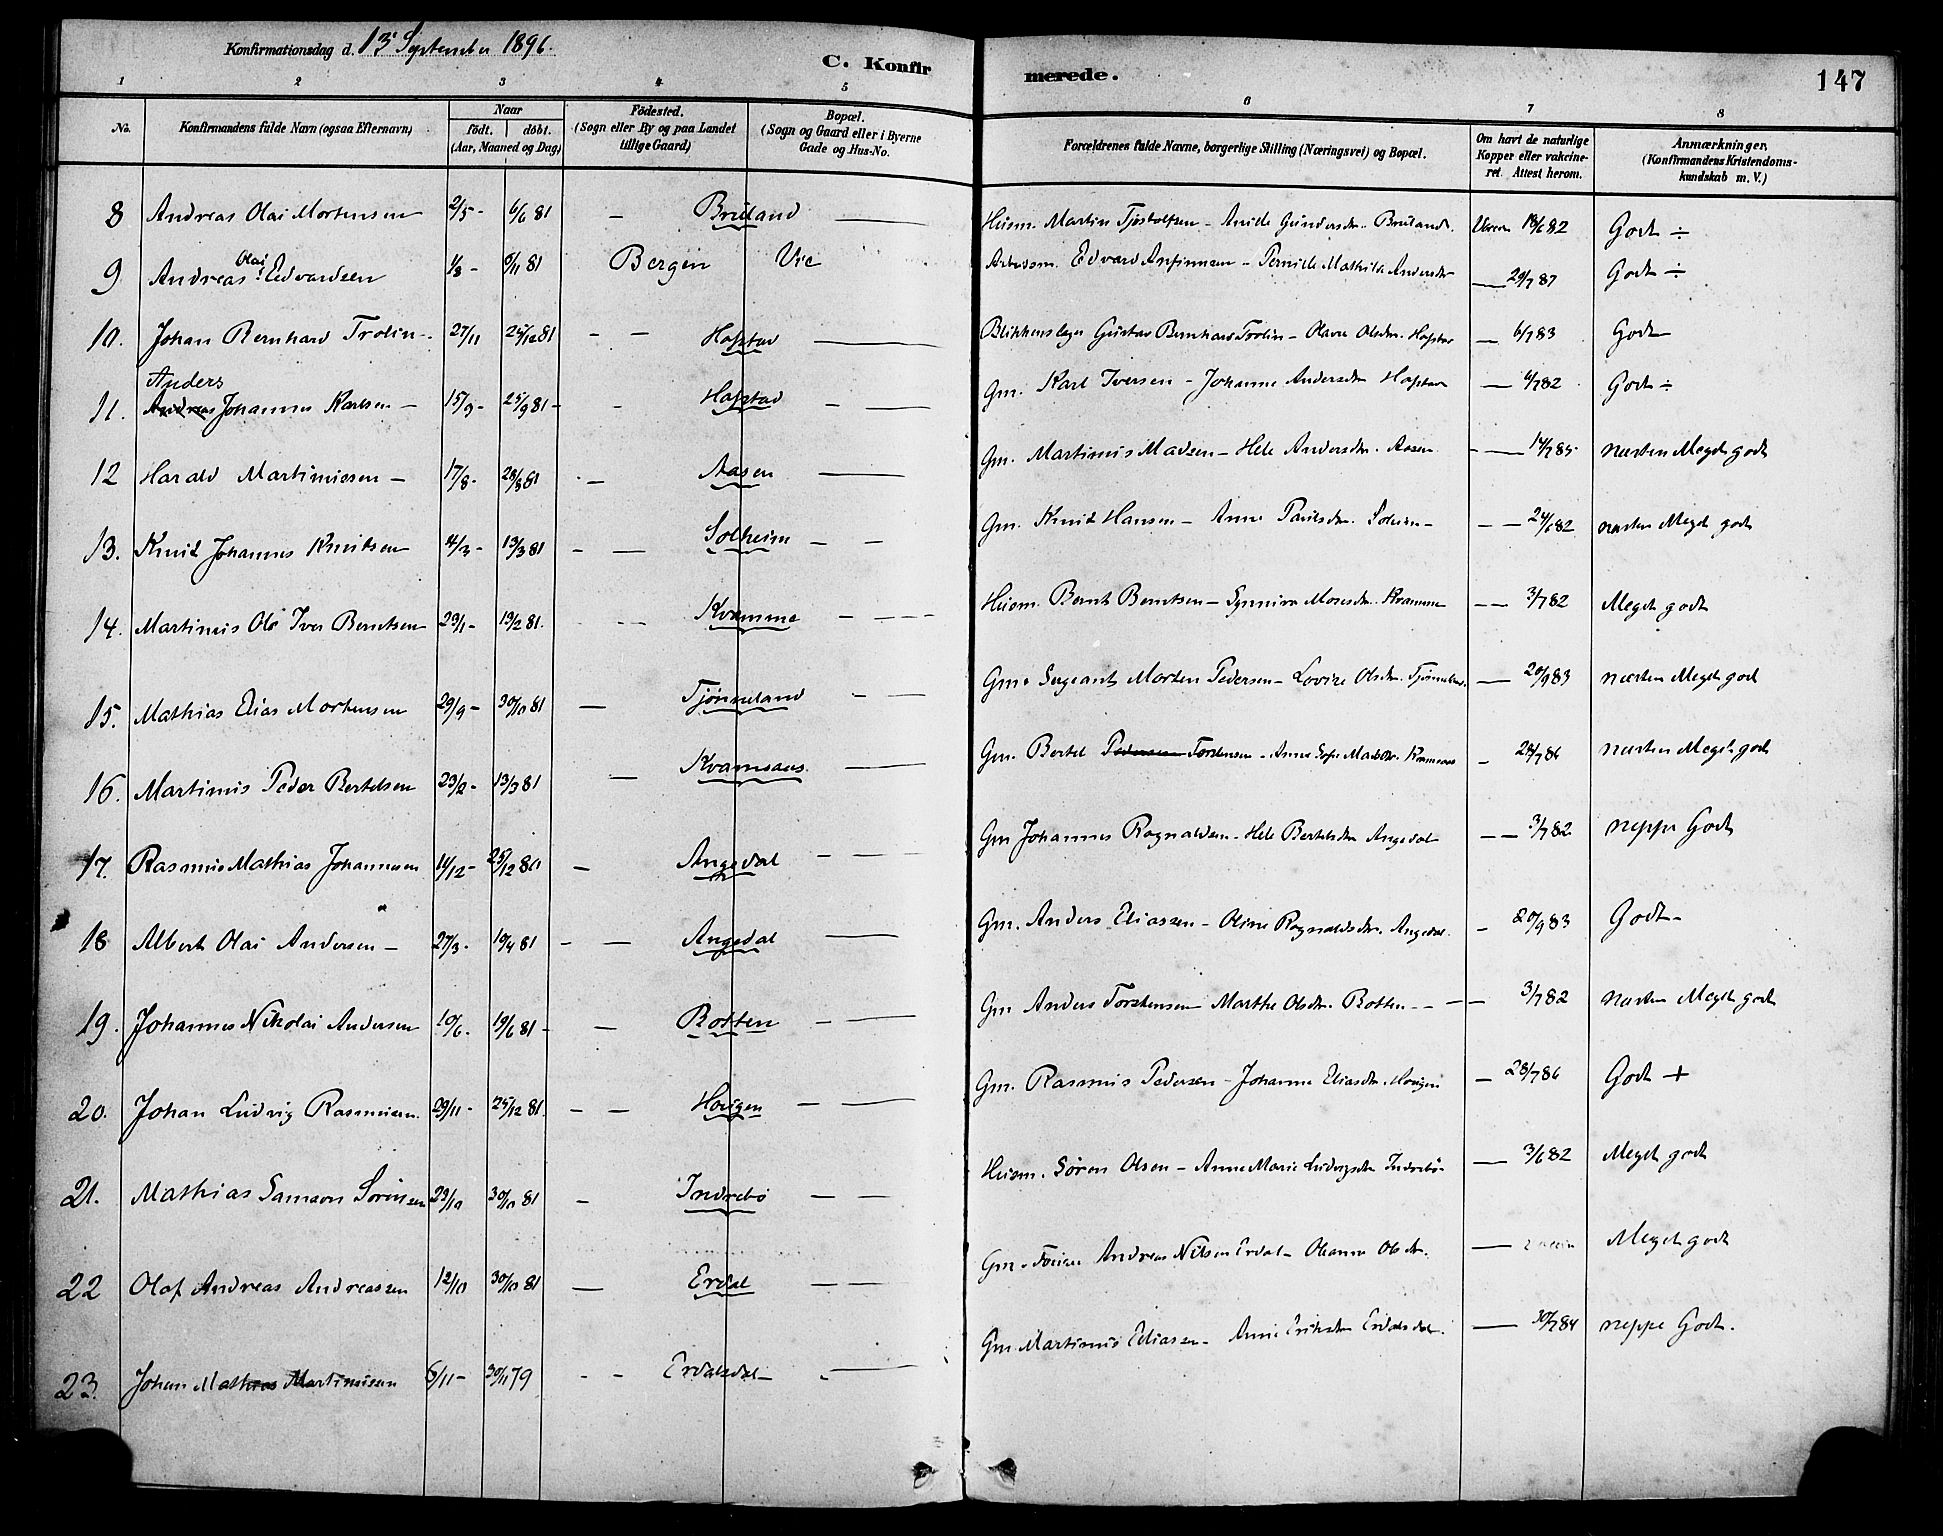 Konfirmationsdag d. 13 September 1896.
C. Konfirmerede.
147
1 2 3 4 5 6 7 8
No. Konfirmandens fulde Navn (ogsaa Efternavn) Naar födt. döbt. (Aar, Maaned og Dag) Födested. (Sogn eller By og paa Landet tillige Gaard) Bopæl. (Sogn og Gaard eller i Byerne Gade og Hus-No. Forældrenes fulde Navne, borgerlige Stilling (Næringsvei) og Bopæl. Om havt de naturlige Kopper eller vakcineret. Attest herom. Anmærkninger. (Konfirmandens Kristendomskundskab m. V.)
8 Andreas Olai Mortensen 2/5 - 6/6 81 - Bruland — Husm. Martin Tjostolfsen - Anide Gundersdtr. Bruland. 18/6 82 Godt ÷
9 Andreas Olai Edvardsen 1/8 - 6/11 81 Bergen Vie Arbeidsm. Edvard Anfinnsen - Pernille Mathilde Andersdtr — 29/7 87 Godt ÷
10. Johan Bernhard Trolin - 27/11 25/12 81 - - Hafstad — Blikkenslager Gustav Bernhard Trolin - Olava Olsdtr. Hafstad — 6/7 83 Godt
11. Anders Andreas Johannes Karlsen - 15/9 - 25/9 81 - - Hafstad - — Gm. Karl Iversen - Johanne Andersdtr Hafstad — 4/7 82 Godt ÷
12 Harald Martinusen - 17/8 - 28/8 81 - Aasen — Gm. Martinus Madsen - Hele Andersdtr. Aasen - — 14/7 85 næsten Meget godt
13. Knud Johannes Knudsen 4/3 - 13/3 81 - — Solheim - - Gm. Knud Hansen - Anne Paulsdtr. Solheim - - — 24/6 82 næsten Meget godt
14. Martinus Ole Iver Berntsen 29/1 - 13/2 81. - - - Kvamme - - - Husm. Bernt Berntsen - Synniva Mosesdtr. Kvamme - — 3/7 82 Meget godt
15. Mathias Elias Mortensen 29/9 - 30/10 81 — Tjönneland - — Gm. Sergeant Morten Pedersen - Lovise Olsdtr. Tjönneland. — 20/9 83 næsten Meget godt
16. Martinus Peder Bertelsen 23/2 - 13/3 81 — Kvamsaas. — Gm. Bertel Pedersen Torstensen - Anne Sofie Madsdtr. Kvamsaas - 28/7 86 næsten Meget godt
17. Rasmus Mathias Johannesen 11/12 - 25/12 81 - Angedal - — Gm Johannes Ragnaldsen - Hele Bertelsdtr Angedal - - 3/7 82 neppe Godt
18 Albert Olai Andersen - 27/3 - 10/4 81 - — Angedal — Gm. Anders Eliassen - Oline Ragnaldsdtr. Angedal. - 20/9 83 Godt -
19. Johannes Nikolai Andersen 10/6 - 19/6 81 - - Botten - — Gm Anders Torstensen Marthe Olsdtr. Botten - - - - 3/7 82 næsten Meget godt
20. Johan Ludvig Rasmussen. 29/11 - 25/12 81. - - Hovigen - — Gm. Rasmus Pedersen - Johanne Eliasdtr. Hovigen — 28/7 86 Godt +
21. Mathias Samson Sörensen 23/10 30/10 81 - Indrebö - — Husm. Sören Olsen - Anne Marie Ludvigsdtr Indrebö - — 3/6 82 Meget godt
22 Olaf Andreas Andreassen 12/10 30/10 81 — Erdal - — Gm. Andreas Nilsen Erdal - Olianna Olsdtr. — Meget godt
23. Johan Mathias Martinusen 6/11 - 30/11 79 - - Erdalsdal - — Gm Martinus Eliassen - Anne Eriksdtr Erdalsdal. — 30/7 84 neppe Godt.